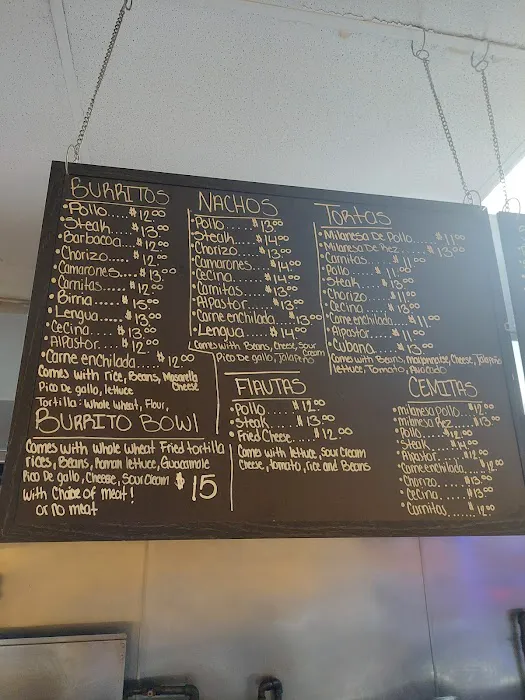 BURRITOS
• Pollo..... $12.00
• Steak..... $13.00
• Barbacoa... $12.00
• Chorizo.... $12.00
• Camarones... $13.00
• Carnitas..... $12.00
• Birria...... $15.00
• Lengua...... $13.00
• Cecina...... $13.00
• AlPastor.... $12.00
• Carne enchilada..... $12.00
Comes with rice, Beans, Mosarella Cheese
Pico De gallo, lettuce
Tortilla: Whole Wheat, Flour,
BURRITO BOWl
Comes with whole wheat Fried tortilla
rices, Beans, Roman lettuce, Guacamole
Pico De gallo, Cheese, Sour Cream $15
with Choice of meat!
or no meat
NACHOS
• Pollo..... $13.00
• Steak..... $14.00
• Chorizo.... $13.00
• Camarones.... $14.00
• Cecina..... $14.00
• Carnitas.... $13.00
• AlPastor..... $13.00
• Carne enchilada... $13.00
• Lengua..... $14.00
Comes with Beans, Cheese, Sour Cream
Pico De gallo, Jalapiño
FlAUTAS
• Pollo..... $12.00
• Steak..... $13.00
• Fried Cheese..... $12.00
Comes with lettuce, Sour Cream
Cheese, tomato, rice and Beans
TORTAS
• Milanesa De Pollo..... $11.00
• Milanesa De Rez.... $13.00
• Carnitas..... $11.00
• Pollo.... $11.00
• Steak..... $13.00
• Chorizo.... $11.00
• Cecina..... $13.00
• Carne enchilada.... $11.00
• AlPastor.... $11.00
• Cubana..... $13.00
Comes with Beans, mayonnaise, Cheese, Jalapiño
lettuce, Tomato, Avocado
CEMITAS
• milanesa pollo.... $12.00
• milanesa Rez..... $13.00
• Pollo..... $12.00
• Steak..... $14.00
• AlPastor..... $12.00
• Carne enchilada.... $12.00
• Chorizo..... $13.00
• Cecina..... $13.00
• Carnitas..... $12.00